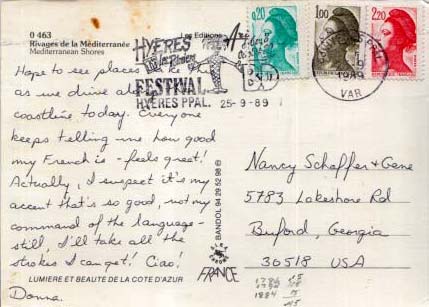 0 463
Rivages de la Méditerranée
Mediterranean Shores
Les Editions
HYÈRES
FESTIVAL
HYERES PPAL.
25-9-89
0,20
1,00
2,20
1989
VAR
Hope to see places like this
as we drive along the
coastline today. Everyone
keeps telling me how good
my French is - feels great!
Actually, I suspect it's my
accent that's so good, not my
command of the language -
still, I'll take all the
strokes I can get! Ciao!
LUMIERE ET BEAUTE DE LA COTE D'AZUR
Donna.
BANDOL 94 29 52 98
FRANCE
Nancy Schaffer & Gene
5783 Lakeshore Rd
Buford, Georgia
30518 USA